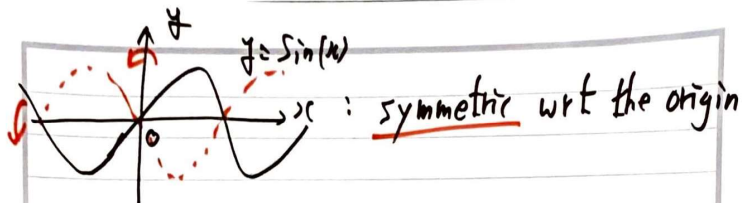 y
y = sin(x)
x : symmetric wrt the origin
O